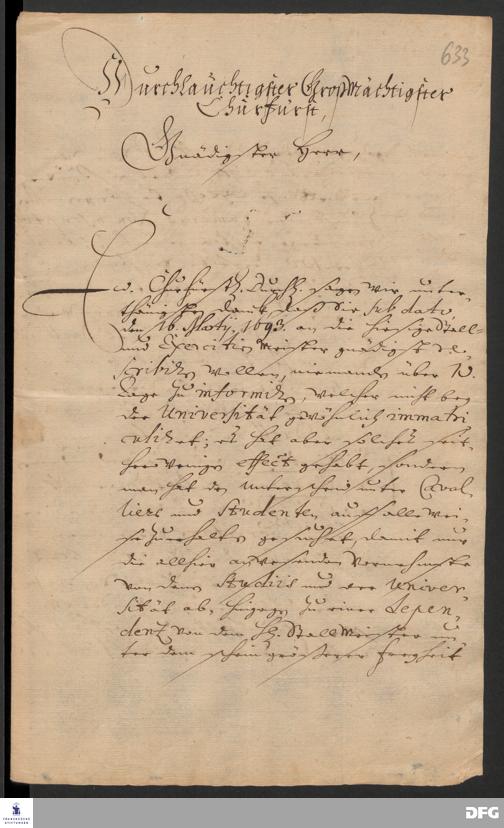 633
Durchlauchtigster Großmächtigster
Churfürst,
Gnädigster Herr,
Ew. Churfürstl. Durchl. sagen wir unter-
thänigsten Danck, daß Sie sub dato
den 16. Martij. 1693. an die hiesige Stall-
und Exercitien Meister gnädigst re-
scribiren wollen, niemanden über 14.
Tage zu informiren, welcher nicht bey
der Universität gewöhnlich immatri
culiret; es hat aber solches seit-
hero wenigen effect gehabt, sondern
man hat den Unterscheid unter Caval-
liers und Studenten auf alle wei-
se zuerhalten gesuchet, damit nur
die allhier anwesenden Vornehmste
von denen Studiis und der Univer-
sität ab, hingegen zu einer Depen-
dentz von dem Stallmeister un-
ter dem schein größerer Freyheit
FRANCKESCHE STIFTUNGEN
DFG